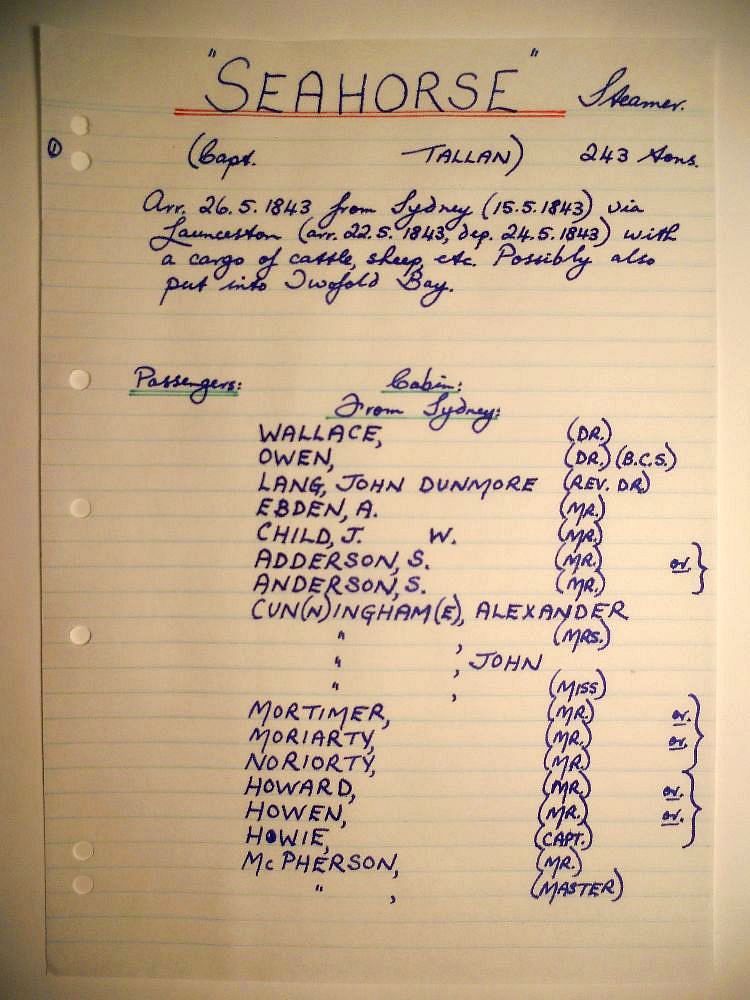 "SEAHORSE" Steamer.
① (Capt. TALLAN) 243 tons.
Arr. 26.5.1843 from Sydney (15.5.1843) via
Launceston (arr. 22.5.1843, dep. 24.5.1843) with
a cargo of cattle, sheep, etc. Possibly also
put into Twofold Bay.
Passengers: Cabin:
From Sydney:
WALLACE, (DR.)
OWEN, (DR.) (B.C.S.)
LANG, JOHN DUNMORE (REV. DR)
EBDEN, A. (MR.)
CHILD, J. W. (MR.)
ADDERSON, S. (MR.) or. }
ANDERSON, S. (MR.)
CUN(N)INGHAM(E), ALEXANDER
" , (MRS.)
" , JOHN
" , (MISS)
MORTIMER, (MR.) or. }
MORIARTY, (MR.) or.
NORIORTY, (MR.)
HOWARD, (MR.) or. }
HOWEN, (MR.) or.
HOWIE, (CAPT.)
McPHERSON, (MR.)
" , (MASTER)